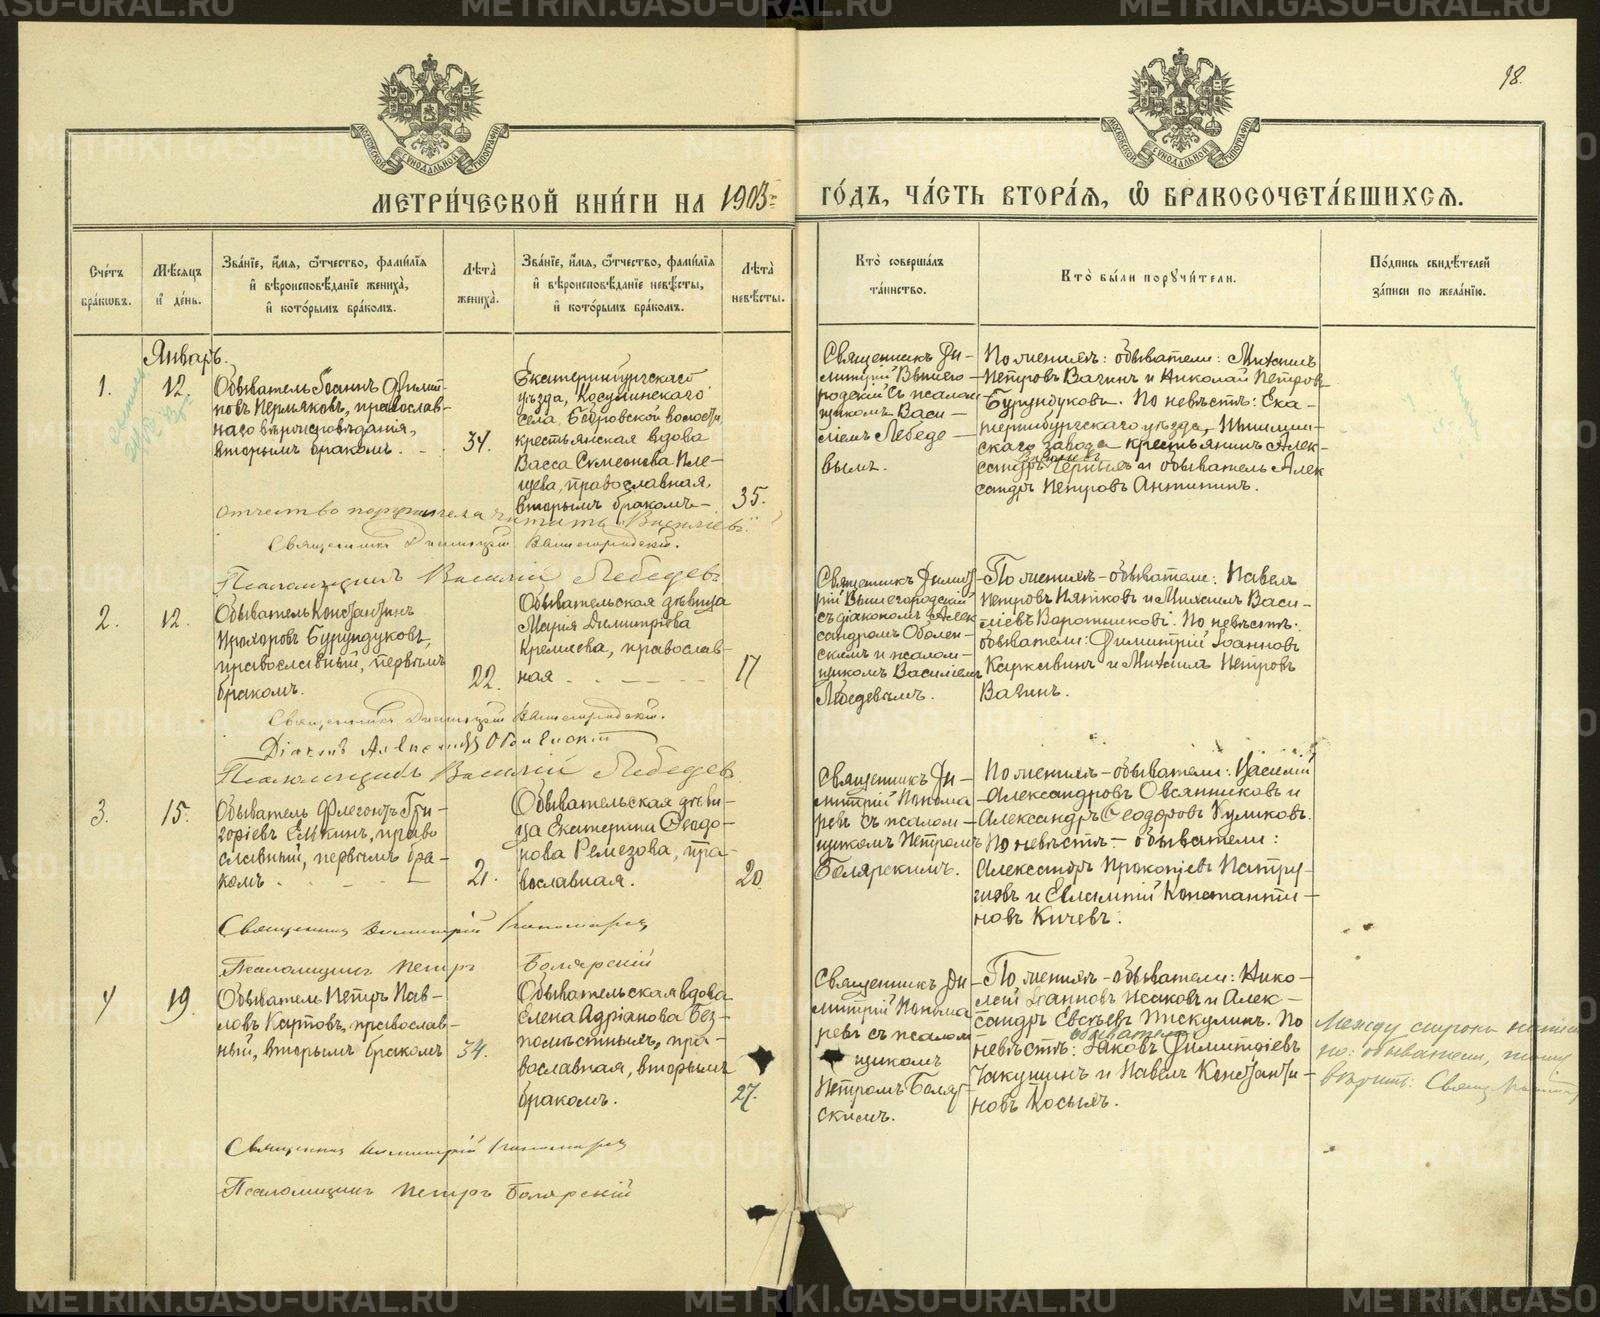 98.
МЕТРИ́ЧЕСКОЙ КНИ́ГИ НА 1903 ГО́ДЪ, ЧА́СТЬ ВТОРА́Я, Ѡ БРАКОСОЧЕТА́ВШИХСѦ.
Сче́тъ бра́кѡвъ.
Мѣ́сѧцъ и҆ де́нь.
Зва́нїе, и҆́мѧ, ѻ҆́тчество, фами́лїѧ и҆ вѣ́роисповѣ́данїе жениха̀, и҆ кото́рымъ бра́комъ.
Лѣ́та жениха̀.
Зва́нїе, и҆́мѧ, ѻ҆́тчество, фами́лїѧ и҆ вѣ́роисповѣ́данїе невѣ́сты, и҆ кото́рымъ бра́комъ.
Лѣ́та невѣ́сты.
Кто̀ соверша́лъ та́инство.
Кто̀ бы́ли порꙋчи́тели.
По́дпись свидѣ́телей за́писи по жела́нїю.
Январь.
1.
12.
Обыватель Іоаннъ Филип-
повъ Пермяковъ, православ-
наго вѣроисповѣданія,
вторымъ бракомъ.
34.
Екатеринбургскаго
уѣзда, Косулинскаго
села, Бобровской волости,
крестьянская вдова
Васса Симеонова Пле-
щева, православная,
вторымъ бракомъ
35.
Священникъ Ди-
митрій Вышего-
родскій съ псалом-
щикомъ Васи-
ліемъ Лебеде-
вымъ.
По женихѣ: обыватели: Михаилъ
Петровъ Вагинъ и Николай Петровъ
Бурундуковъ. По невѣстѣ: Ека-
теринбургскаго уѣзда,
скаго завода крестьянинъ Алек-
сандръ и обыватель Алек
сандръ Петровъ Антипинъ.
Отчество поручителя читать „Васильевъ"
Священникъ Димитрій Вышегородскій.
Псаломщикъ Василій Лебедевъ
2.
12.
Обыватель Константинъ
Прохоровъ Бурундуковъ,
православный, первымъ
бракомъ.
22.
Обывательская дѣвица
Марія Димитріева
Кремлева, православ-
ная
17
Священникъ Димит-
рій Вышегородскій
съ діакономъ Алек
сандромъ Оболен-
скимъ и псалом-
щикомъ Василіемъ
Лебедевымъ.
По женихѣ - обыватели: Павелъ
Петровъ Пятковъ и Михаилъ Васи-
ліевъ Воротниковъ. По невѣстѣ:
обыватели: Димитрій Іоанновъ
Каркавинъ и Михаилъ Петровъ
Вагинъ.
Священникъ Димитрій Вышегородскій.
Діаконъ Александръ Оболенскій
Псаломщикъ Василій Лебедевъ
3.
15.
Обыватель Флегонтъ Гри-
горіевъ Елькинъ, право
славный, первымъ бра-
комъ
21.
Обывательская дѣви-
ца Екатерина Ѳеодо-
рова Ремезова, пра-
вославная.
20.
Священникъ Ди-
митрій Понома
ревъ съ псалом-
щикомъ Петромъ
Боярскимъ.
По женихѣ - обыватели: Василій
Александровъ Овсянниковъ и
Александръ Ѳеодоровъ Куликовъ.
По невѣстѣ - обыватели:
Александръ Прокопіевъ Патру-
шевъ и Евлампій Константи-
новъ Кичевъ.
Священникъ Димитрій Пономаревъ
Псаломщикъ Петръ Боярскій
4
19.
Обыватель Петръ Пав-
ловъ Картовъ, православ-
ный, вторымъ бракомъ
34.
Обывательская вдова
Елена Адріанова Без-
помѣстныхъ, пра-
вославная, вторымъ
бракомъ.
27.
Священникъ Ди
митрій Понома
ревъ съ псалом
щикомъ
Петромъ Бояр-
скимъ.
По женихѣ - обыватели: Нико-
лай Іоанновъ Исаковъ и Алек-
сандръ Евсѣевъ Пискулинъ. По
обыватели
невѣстѣ: Іаковъ Димитріевъ
Чакушинъ и Павелъ Константи-
новъ Косыхъ.
Между строкъ написан
но: обыватели, тому
вѣрить: Свящ.
Священникъ Димитрій Пономаревъ
Псаломщикъ Петръ Боярскій
METRIKI.GASO-URAL.RU